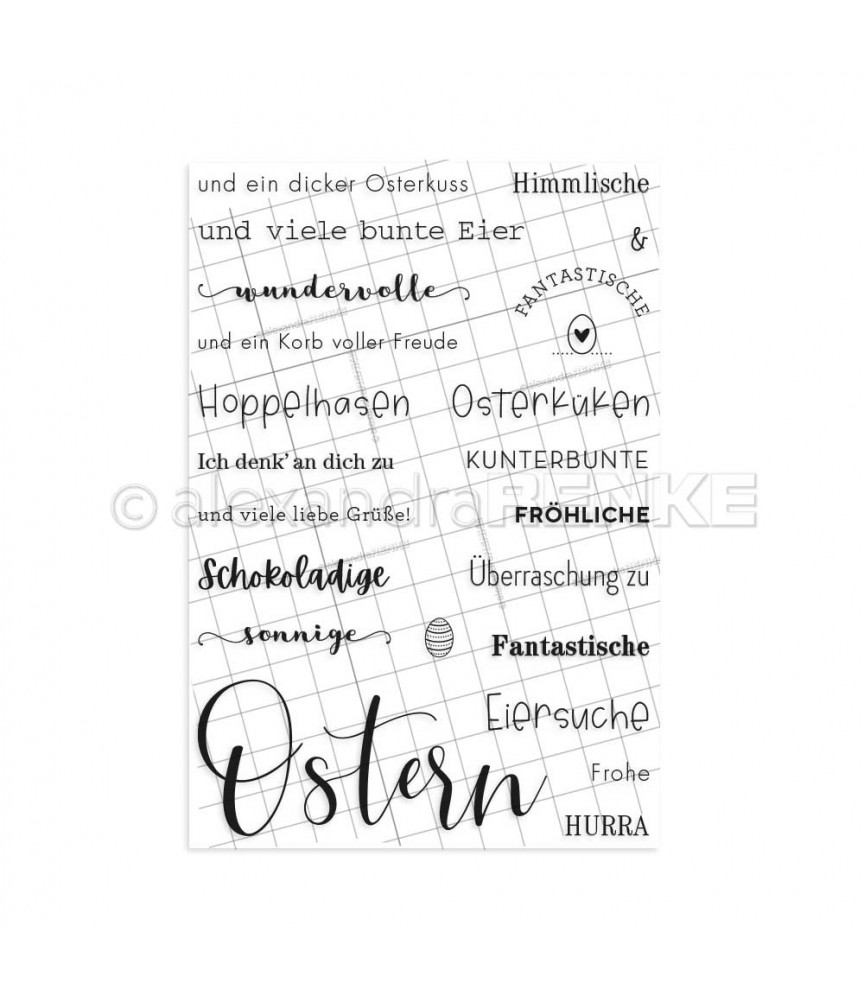 und ein dicker Osterkuss
Himmlische
und viele bunte Eier
&
wundervolle
FANTASTISCHE
und ein Korb voller Freude
Hoppelhasen
Osterküken
Ich denk’ an dich zu
KUNTERBUNTE
© alexandraRENKE
und viele liebe Grüße!
FRÖHLICHE
Schokoladige
Überraschung zu
sonnige
Fantastische
Eiersuche
Ostern
Frohe
HURRA